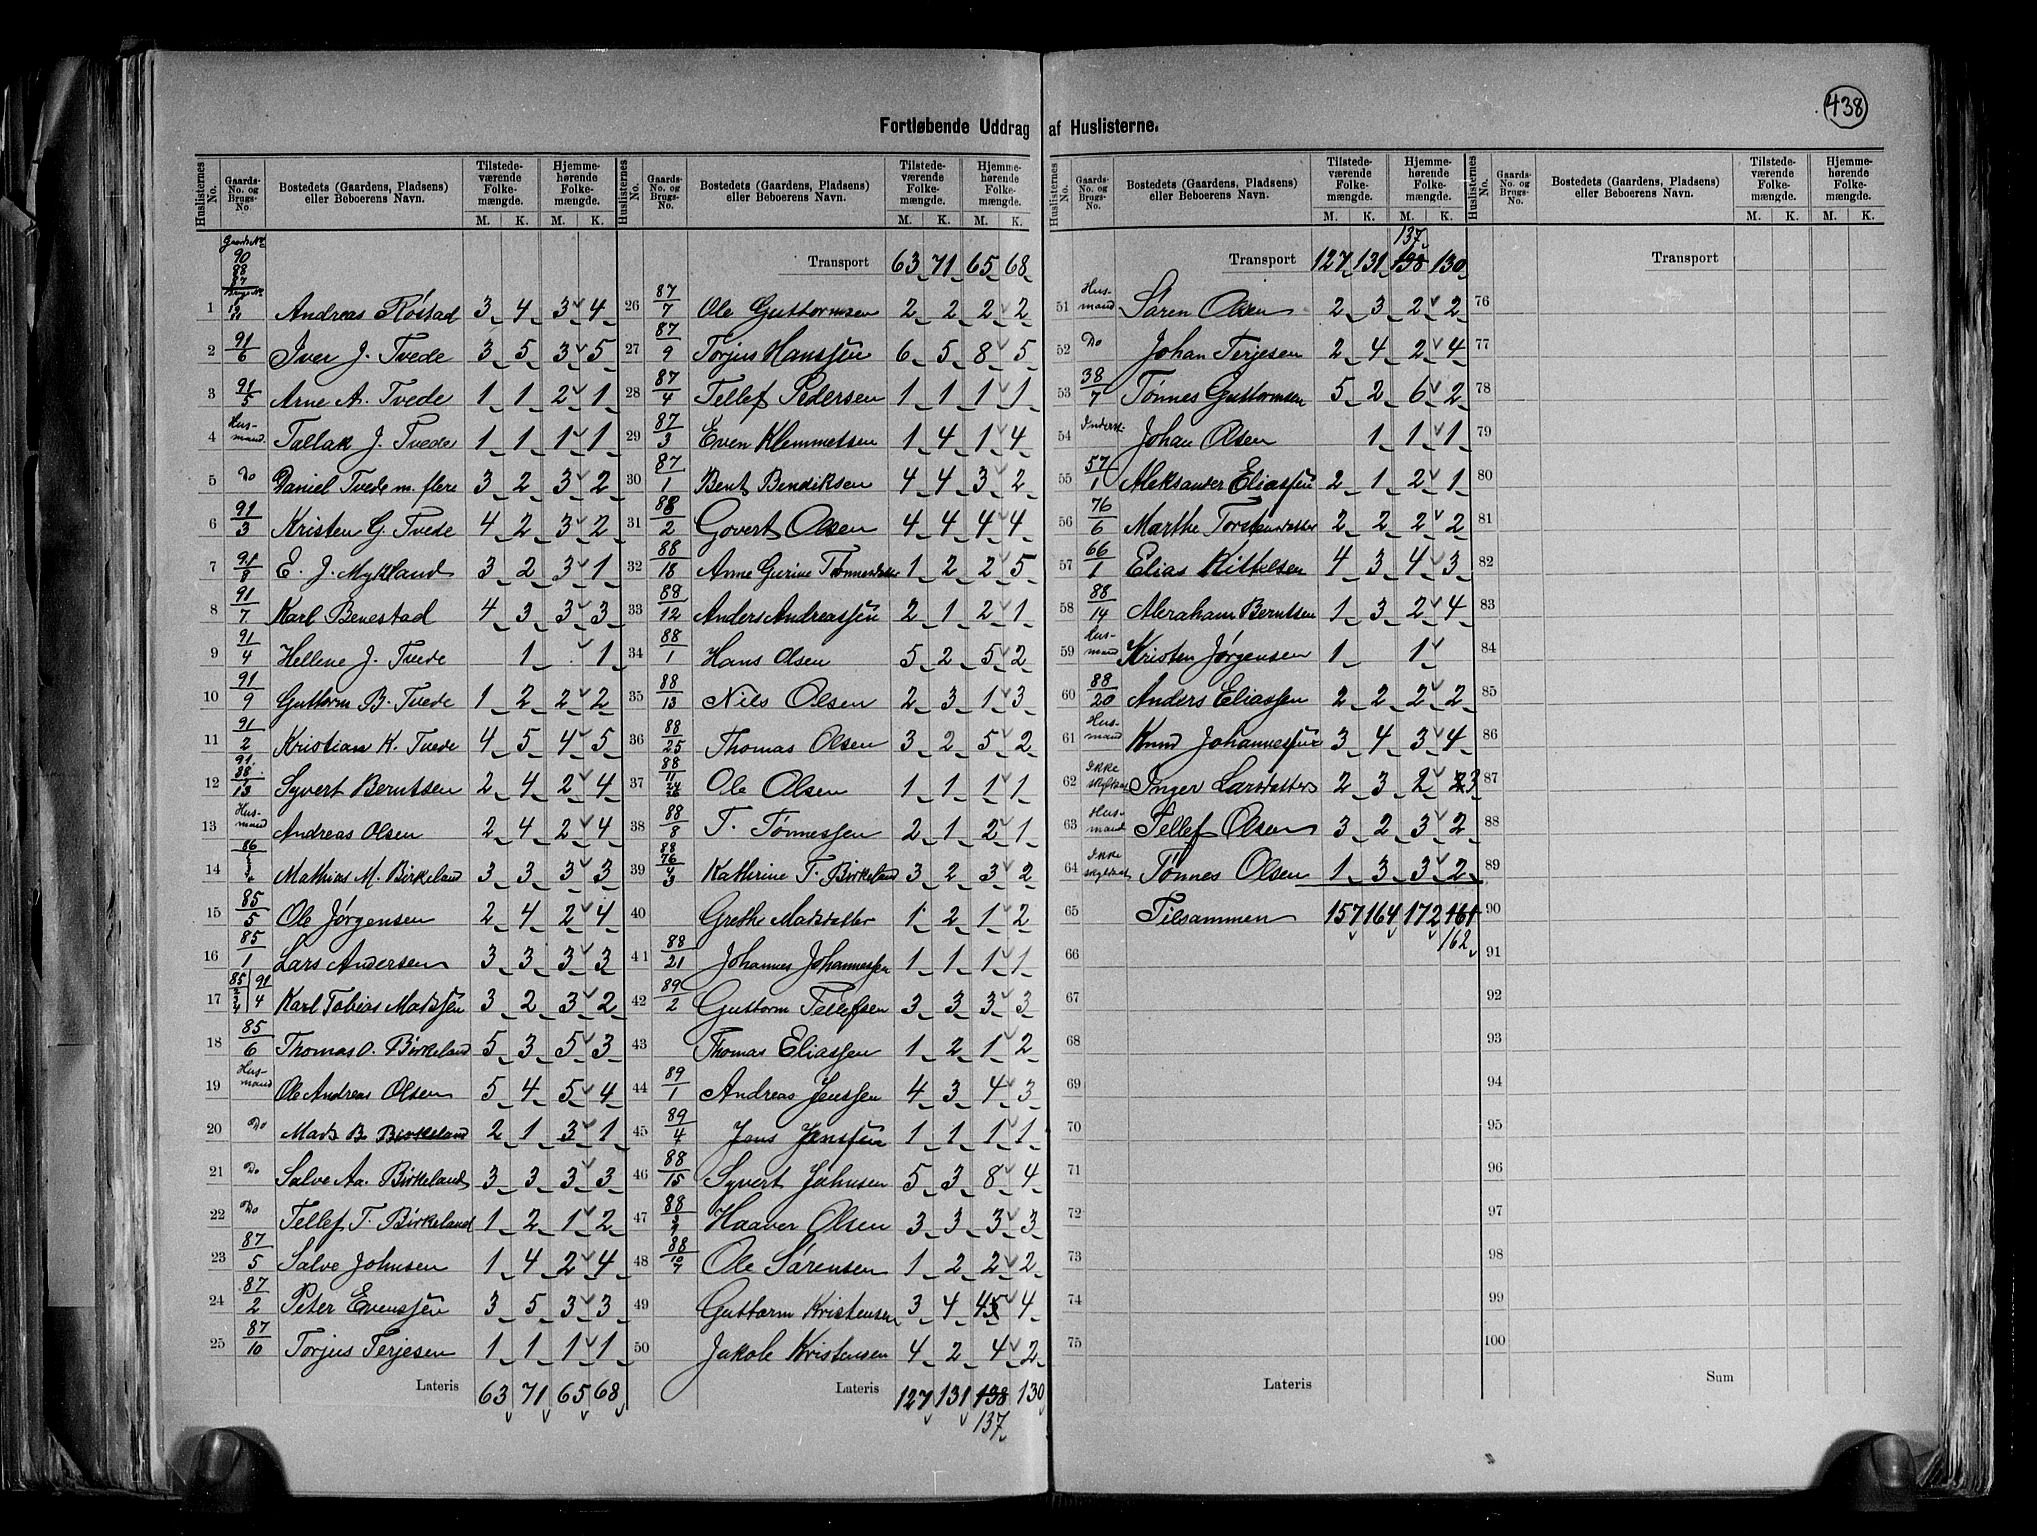 438
Fortløbende Uddrag af Huslisterne.
Huslisternes No. | Gaards-No. og Brugs-No. | Bostedets (Gaardens, Pladsens) eller Beboerens Navn. | Tilstedeværende Folkemængde. M. K. | Hjemmehørende Folkemængde. M. K.
Gaards No
90
88
87
Brugs No
1 Andreas Røstad 3 4 3 4
2 91/6 Iver J. Tvede 3 5 3 5
3 91/5 Arne A. Tvede 1 1 2 1
4 Husmand. Tallak J. Tvede 1 1 1 1
5 Do Daniel Tvede m. flere 3 2 3 2
6 91/3 Kristen G. Tvede 4 2 3 2
7 91/8 E. J. Mykland 3 2 3 1
8 91/7 Karl Benestad 4 3 3 3
9 91/4 Hellene J. Tvede 1 1
10 91/9 Guttorm B. Tvede 1 2 2 2
11 91/2 Kristian K. Tvede 4 5 4 5
12 91. 38/13 Syvert Berntsen 2 4 2 4
13 Husmand Andreas Olsen 2 4 2 4
14 86 Mathias M. Birkeland 3 3 3 3
15 85/5 Ole Jørgensen 2 4 2 4
16 85/1 Lars Andersen 3 3 3 3
17 85/2 3 4 91/4 Karl Tobias Madssen 3 2 3 2
18 85/6 Thomas O. Birkeland 5 3 5 3
19 Husmand Ole Andreas Olsen 5 4 5 4
20 Do Mads B. Birkeland 2 1 3 1
21 Do Salve Aa. Birkeland 3 3 3 3
22 Do Tellef T. Birkeland 1 2 1 2
23 87/5 Salve Johnsen 1 4 2 4
24 87/2 Peter Evenssen 3 5 3 3
25 87/10 Torjus Terjesen 1 1 1 1
Lateris 63 71 65 68
Huslisternes No. | Gaards-No. og Brugs-No. | Bostedets (Gaardens, Pladsens) eller Beboerens Navn. | Tilstedeværende Folkemængde. M. K. | Hjemmehørende Folkemængde. M. K.
Transport 63 71 65 68
26 87/7 Ole Guttormsen 2 2 2 2
27 87/9 Torjus Hanssen 6 5 8 5
28 87/4 Tellef Pedersen 1 1 1 1
29 87/3 Even Klemmetsen 1 4 1 4
30 87/1 Bent Bendiksen 4 4 3 2
31 88/2 Govert Olsen 4 4 4 4
32 88/18 Anne Gurine Tønnesdatter 1 2 2 5
33 88/12 Anders Andreassen 2 1 2 1
34 88/1 Hans Olsen 5 2 5 2
35 88/13 Nils Olsen 2 3 1 3
36 88/25 Thomas Olsen 3 2 5 2
37 88/11 Ole Olsen 1 1 1 1
38 88/8 T. Tønnessen 2 1 2 1
39 88 76/4 3 Kathrine T. Birkeland 3 2 3 2
40 Grethe Madsdatter 1 2 1 2
41 88/21 Johannes Johannessen 1 1 1 1
42 89/2 Guttorm Tellefsen 3 3 3 3
43 Thomas Eliassen 1 2 1 2
44 89/1 Andreas Jenssen 4 3 4 3
45 89/4 Jens Jenssen 1 1 1 1
46 88/15 Syvert Johnsen 5 3 8 4
47 88/3 Haaver Olsen 3 3 3 3
48 88/10 9 Ole Sørensen 1 2 2 2
49 Guttorm Kristensen 3 4 4 4
50 Jakob Kristensen 4 2 4 2
Lateris 127 131 138 130
137
Huslisternes No. | Gaards-No. og Brugs-No. | Bostedets (Gaardens, Pladsens) eller Beboerens Navn. | Tilstedeværende Folkemængde. M. K. | Hjemmehørende Folkemængde. M. K.
137
Transport 127 131 138 130
51 Husmand Søren Olsen 2 3 2 2
52 Do Johan Terjesen 2 4 2 4
53 38/7 Tønnes Guttormsen 5 2 6 2
54 Inderst. Johan Olsen 1 1 1
55 57/1 Aleksander Eliassen 2 1 2 1
56 76/6 Marthe Torstensdatter 2 2 2 2
57 66/1 Elias Kittelsen 4 3 4 3
58 88/14 Abraham Berntsen 1 3 2 4
59 Husmand Kristen Jørgensen 1 1
60 88/20 Anders Eliassen 2 2 2 2
61 Husmand Knud Johannessen 3 4 3 4
62 Ikke skyldsat Inger Larsdatter 2 3 2 2 3
63 Husmand Tellef Olsen 3 2 3 2
64 Ikke skyldsat Tønnes Olsen 1 3 3 2
65 Tilsammen 157 164 172 161
162
66
67
68
69
70
71
72
73
74
75
Lateris
Huslisternes No. | Gaards-No. og Brugs-No. | Bostedets (Gaardens, Pladsens) eller Beboerens Navn. | Tilstedeværende Folkemængde. M. K. | Hjemmehørende Folkemængde. M. K.
Transport
76
77
78
79
80
81
82
83
84
85
86
87
88
89
90
91
92
93
94
95
96
97
98
99
100
Sum